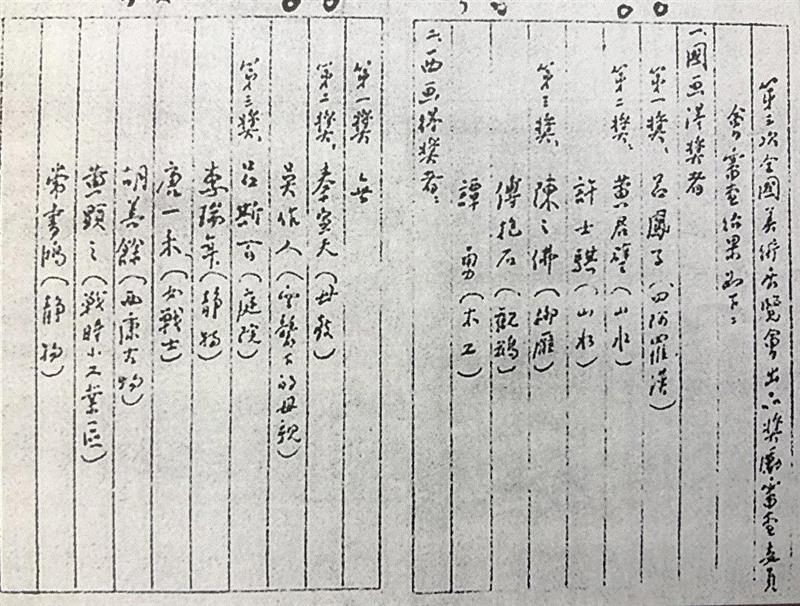 第三次全國美術展覽會出品獎勵審查委員
會審查結果如下：
一、國画得奖者
第一獎、呂鳳子（四阿罹漢）
第二獎、黄君璧（山水）
許士騏（山水）
第三獎、陳之佛（柳雁）
傅抱石（觀鵝）
譚勇（木工）
二、西画得奖者：
第一獎 無
第二獎、秦宣夫（母教）
吳作人（空襲下的母親）
第三獎、呂斯百（庭院）
李瑞年（静物）
唐一禾（女戰士）
胡善餘（西康文物）
黄顕之（戰時小工業區）
常書鴻（静物）